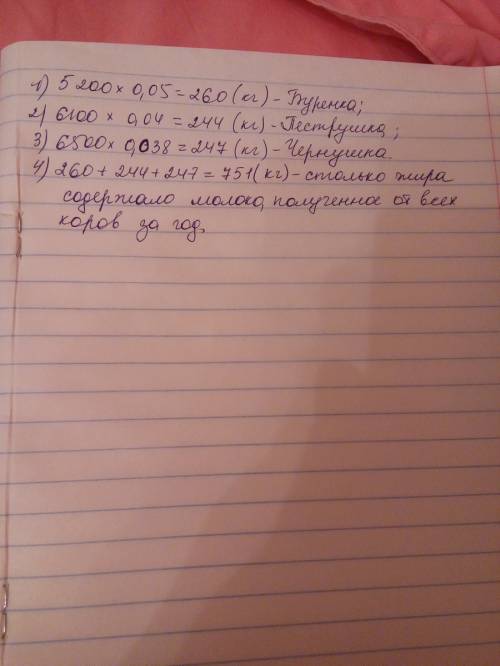 1) 5200 × 0,05 = 260 (кг) - Буренка;
2) 6100 × 0,04 = 244 (кг) - Пеструшка;
3) 6500 × 0,038 = 247 (кг) - Чернушка.
4) 260 + 244 + 247 = 751 (кг) - столько жира
содержало молоко, полученное от всех
коров за год.